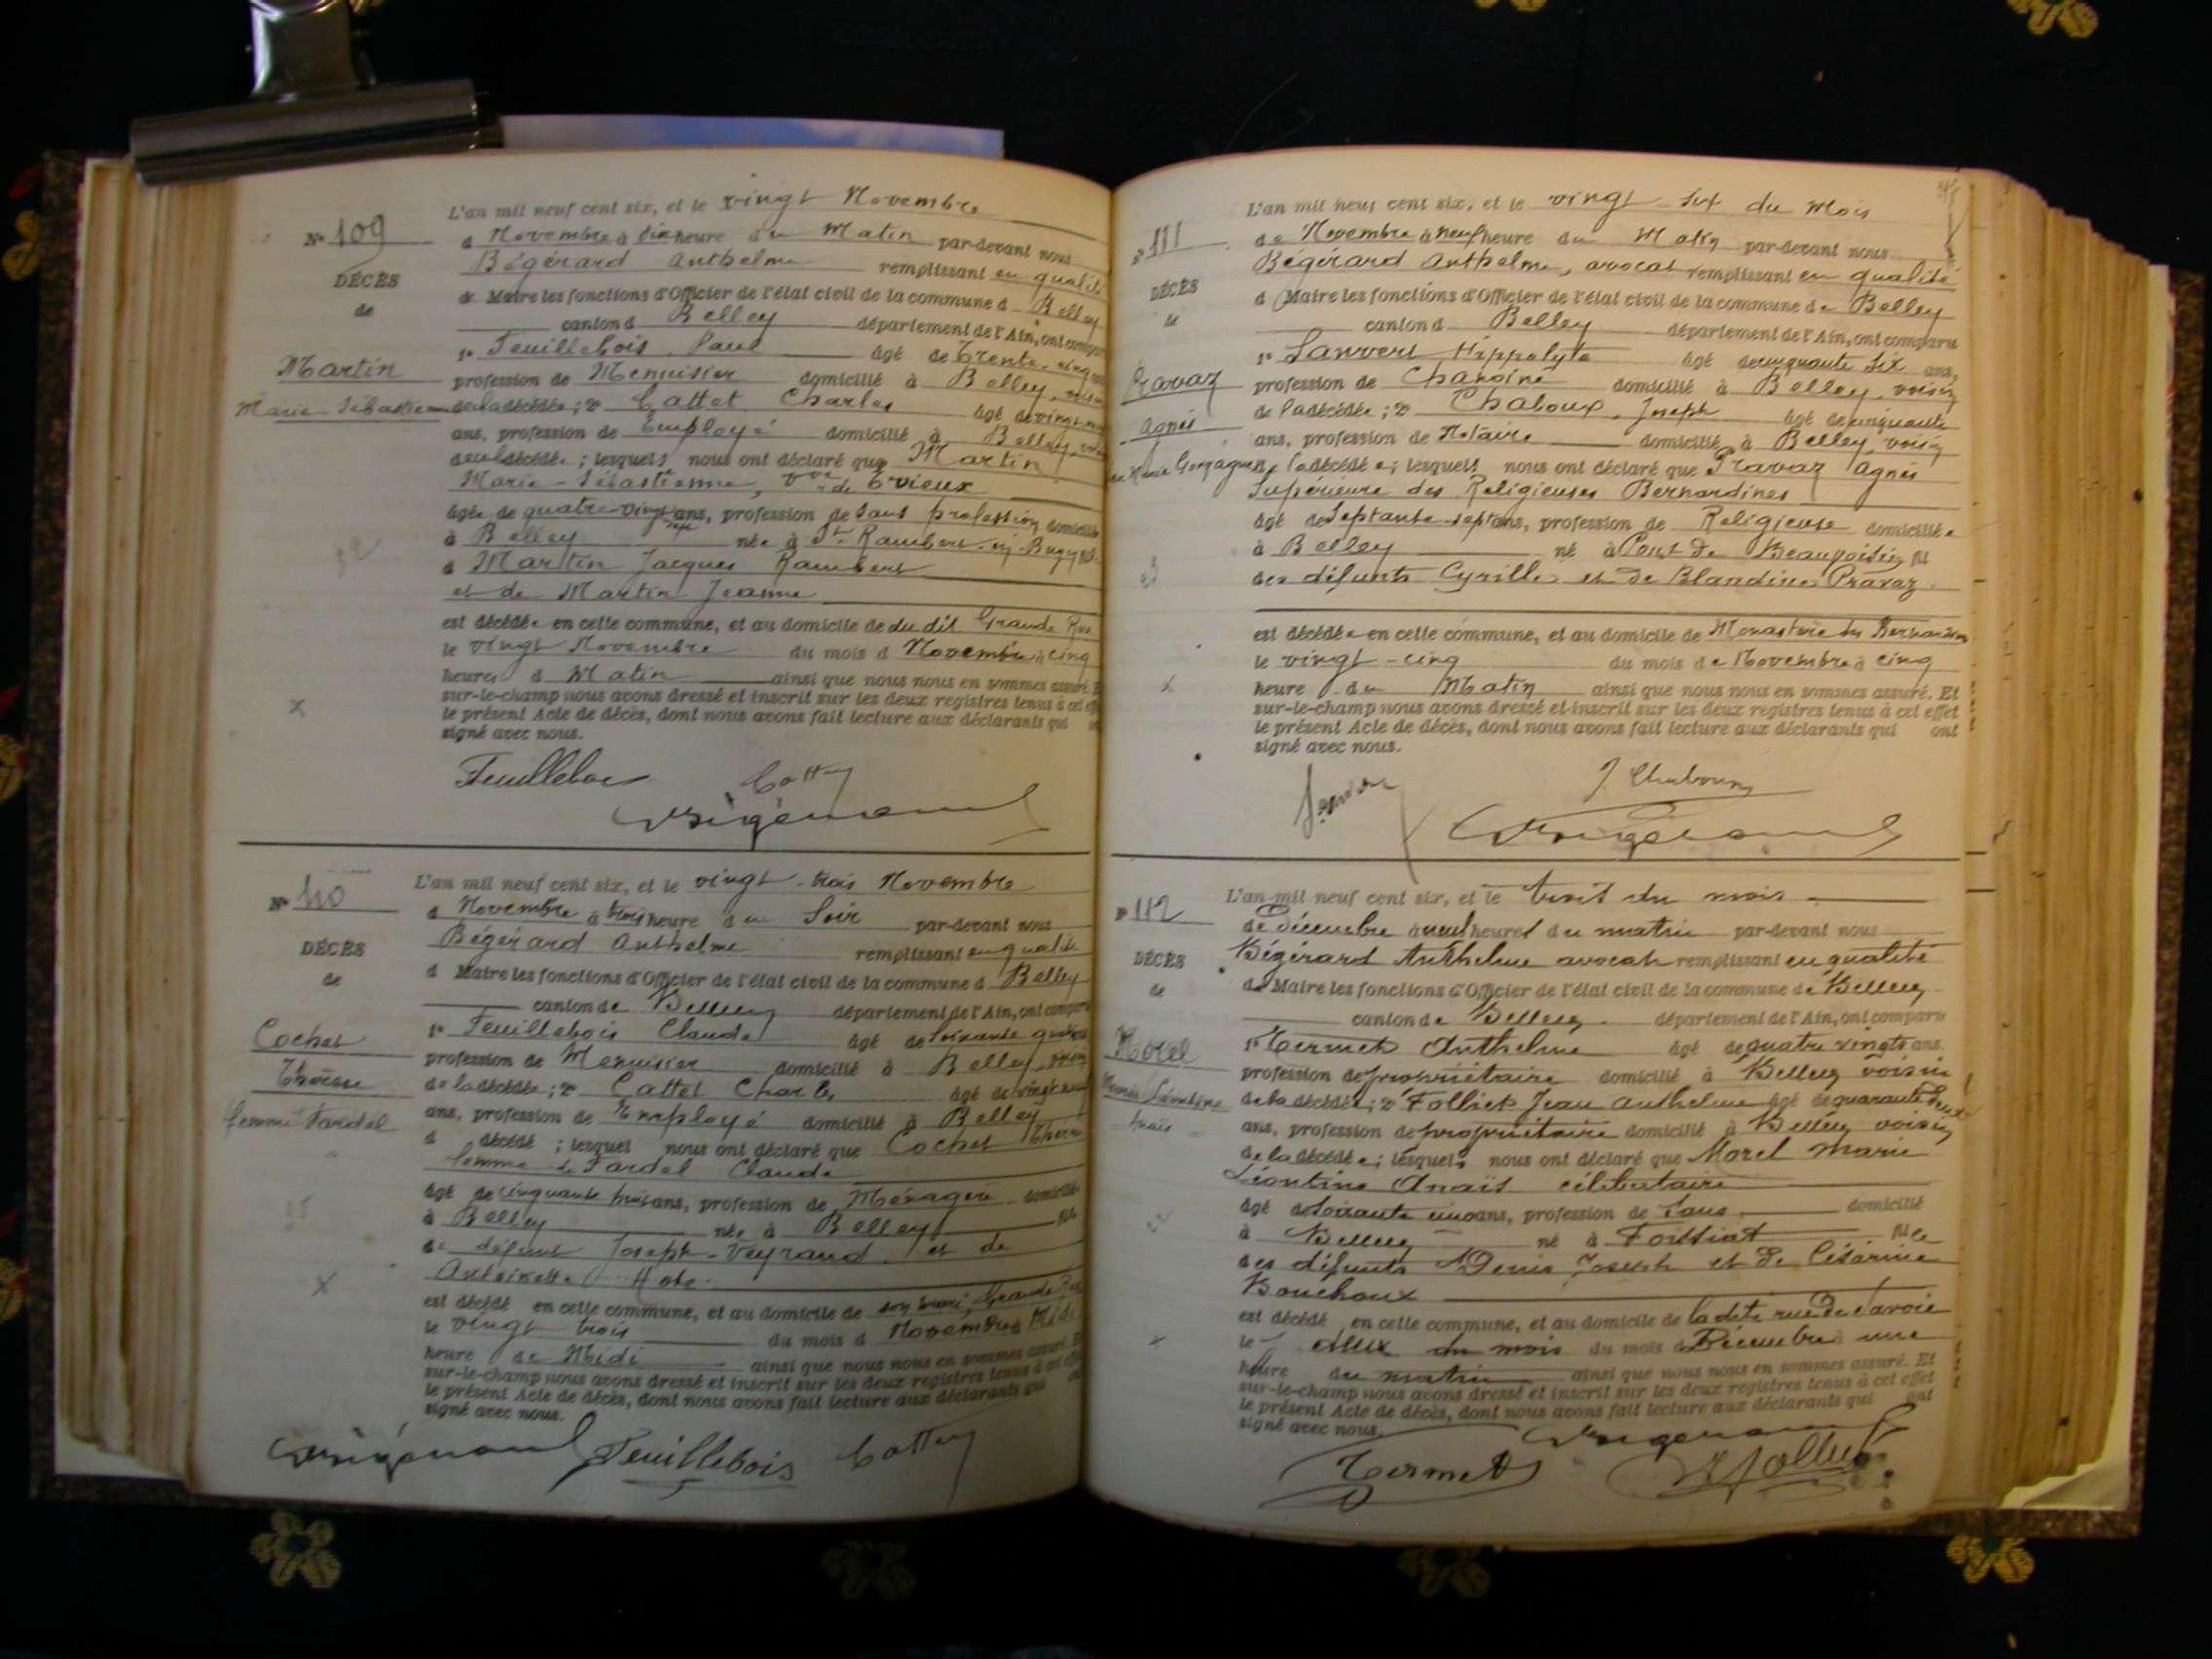 L'an mil neuf cent six, et le vingt Novembre
N° 109
d Novembre à dix heure du Matin par-devant nous
Bégérard Anthelme remplissant en qualité
DÉCÈS
de Maire les fonctions d'Officier de l'état civil de la commune d Belley
de
canton d Belley département de l'Ain, ont comparu
1° Feuillebois Paul âgé de Trente-cinq
Martin
profession de Menuisier domicilié à Belley, voisin
Marie-Sébastienne
de la décédée; 2° Cattet Charles âgé de vingt-neuf
ans, profession de Employé domicilié à Belley, voisin
de la décédée; lesquels nous ont déclaré que Martin
Marie-Sébastienne, Vve de Evieux
âgée de quatre-vingt sept ans, profession de Sans profession domiciliée
à Belley née à St Rambert-en-Bugey fille
d Martin Jacques Rambert
et de Martin Jeanne
est décédée en cette commune, et au domicile de du dit Grande Rue
le vingt Novembre du mois d Novembre à cinq
heures d Matin ainsi que nous nous en sommes assuré. Et
sur-le-champ nous avons dressé et inscrit sur les deux registres tenus à cet effet
le présent Acte de décès, dont nous avons fait lecture aux déclarants qui ont
signé avec nous.
Feuillebois Cattet
Bégérard
L'an mil neuf cent six, et le vingt-trois Novembre
N° 110
d Novembre à trois heure du Soir par-devant nous
Bégérard Anthelme remplissant en qualité
DÉCÈS
d Maire les fonctions d'Officier de l'état civil de la commune d Belley
de
canton de Belley département de l'Ain, ont comparu
1° Feuillebois Claude âgé de Soixante quatre
Cochet
profession de Menuisier domicilié à Belley, voisin
Thérèse
de la décédée; 2° Cattet Charles âgé de vingt neuf
femme Fardel
ans, profession de Employé domicilié à Belley
d décédé ; lesquel nous ont déclaré que Cochet Thérèse
femme de Fardel Claude
âgé de cinquante huit ans, profession de Ménagère domiciliée
à Belley née à Belley fille
de défunt Joseph-Veyraud et de
Antoinette Hote
est décédé en cette commune, et au domicile de son mari, Grande Rue
le vingt trois du mois d Novembre à Midi
heure de Midi ainsi que nous nous en sommes assuré. Et
sur-le-champ nous avons dressé et inscrit sur les deux registres tenus à cet effet
le présent Acte de décès, dont nous avons fait lecture aux déclarants qui ont
signé avec nous.
Bégérard Feuillebois Cattet
L'an mil neuf cent six, et le vingt-six du mois
N° 111
de Novembre à neuf heure du Matin par-devant nous
Bégérard Anthelme, avocat remplissant en qualité
DÉCÈS
d Maire les fonctions d'Officier de l'état civil de la commune de Belley
de
canton d Belley département de l'Ain, ont comparu
1° Sanvert Hippolyte âgé de cinquante six ans,
Pravaz
profession de Chanoine domicilié à Belley, voisin
Agnès
de la décédée; 2° Chaboux Joseph âgé de cinquante
ans, profession de Notaire domicilié à Belley, voisin
de la décédée; lesquels nous ont déclaré que Pravaz Agnès
Supérieure des Religieuses Bernardines
âgé de Septante-sept ans, profession de Religieuse domiciliée
à Belley né à Pont de Beauvoisin fil
des défunts Cyrille et de Blandine Pravaz
est décédée en cette commune, et au domicile de Monastère des Bernardines
le vingt-cinq du mois de Novembre à cinq
heure du Matin ainsi que nous nous en sommes assuré. Et
sur-le-champ nous avons dressé et inscrit sur les deux registres tenus à cet effet
le présent Acte de décès, dont nous avons fait lecture aux déclarants qui ont
signé avec nous.
J. Chaboux
Bégérard
L'an mil neuf cent six, et le trois du mois
N° 112
de Décembre à neuf heures du matin par-devant nous
Bégérard Anthelme avocat remplissant en qualité
DÉCÈS
de Maire les fonctions d'Officier de l'état civil de la commune de Belley
de
canton de Belley département de l'Ain, ont comparu
1° Termet Anthelme âgé de quatre vingts ans
Morel
profession de propriétaire domicilié à Belley voisin
Marie Léontine
de la décédée; 2° Folliet Jean Anthelme âgé de quarante deux
Anaïs
ans, profession de propriétaire domicilié à Belley voisin
de la décédée; lesquels nous ont déclaré que Morel Marie
Léontine Anaïs célibataire
âgé de Soixante un ans, profession de Sans domicilié
à Belley né à Foissiat fille
des défunts Denis Joseph et de Césarine
Bouchoux
est décédé en cette commune, et au domicile de la dite rue de Savoie
le deux du mois du mois d Décembre à une
heure du matin ainsi que nous nous en sommes assuré. Et
sur-le-champ nous avons dressé et inscrit sur les deux registres tenus à cet effet
le présent Acte de décès, dont nous avons fait lecture aux déclarants qui ont
signé avec nous.
Bégérard
Termet Folliet